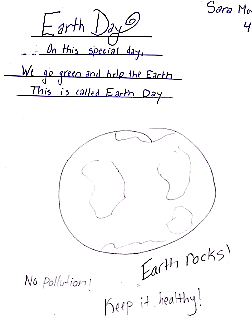 Sara
4
Earth Day
On this special day,
We go green and help the Earth
This is called Earth Day
Earth rocks!
No pollution!
Keep it healthy!